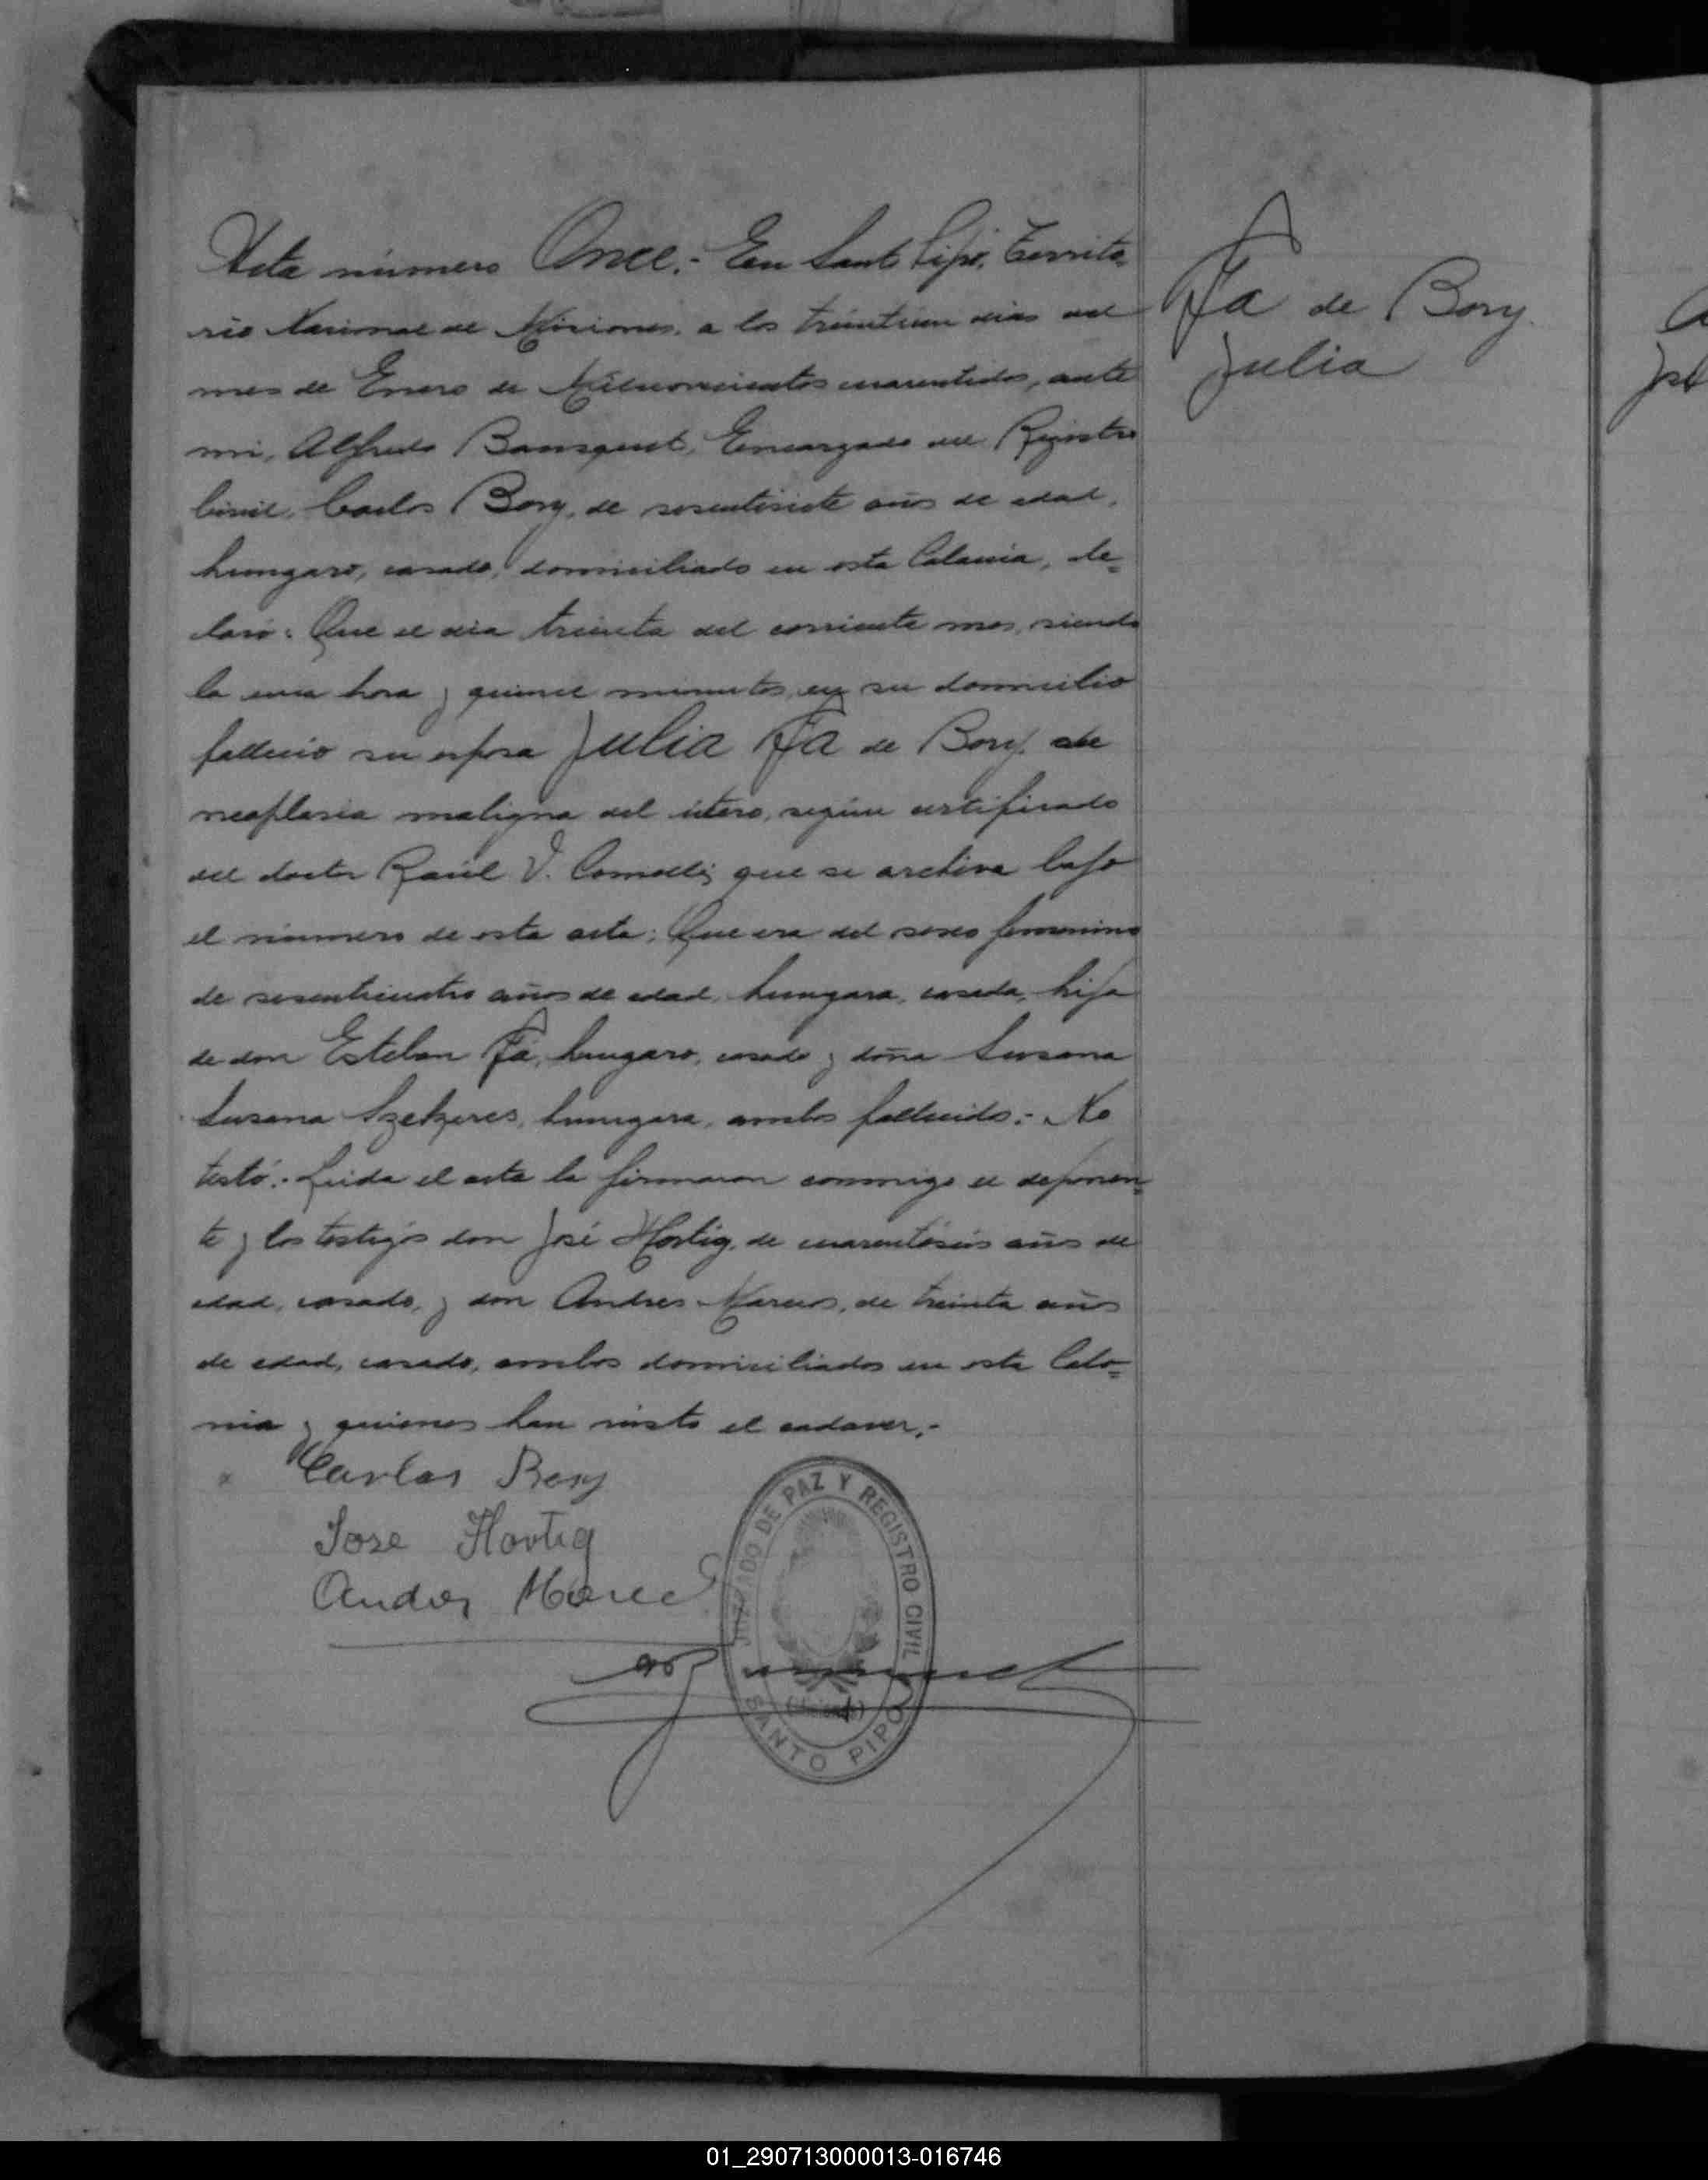 Acta número Once.- En Santo Pipó, Territo-
rio Nacional de Misiones, a los treintiun dias del
mes de Enero de Milnovecientos cuarentidos, ante
mi, Alfredo Bousquet, Encargado del Registro
Civil, Carlos Bory, de sesentisiete años de edad,
hungaro, casado, domiciliado en esta Colonia, de=
claró: Que el dia treinta del corriente mes, siendo
la una hora y quince minutos, en su domicilio
falleció su esposa Julia Fa de Bory, de
neoplasia maligna del útero, según certificado
del doctor Raúl V. Comolli; que se archiva bajo
el número de esta acta; Que era del sexo femenino
de sesenticuatro años de edad, hungara, casada, hija
de don Esteban Fa, hungaro, casado y doña Susana
Susana Szekeres, hungara, ambos fallecidos.- No
testó.- Leida el acta la firmaron conmigo el deponen=
te y los testigos don José Hortig, de cuarentiseis años de
edad, casado, y don Andres Marcos, de treinta años
de edad, casado, ambos domiciliados en esta Colo=
nia y quienes han visto el cadaver.-
Carlos Bory
Jose Hortig
Andres
JUZGADO DE PAZ Y REGISTRO CIVIL
SANTO PIPÓ
Fa de Bory
Julia
01_290713000013-016746